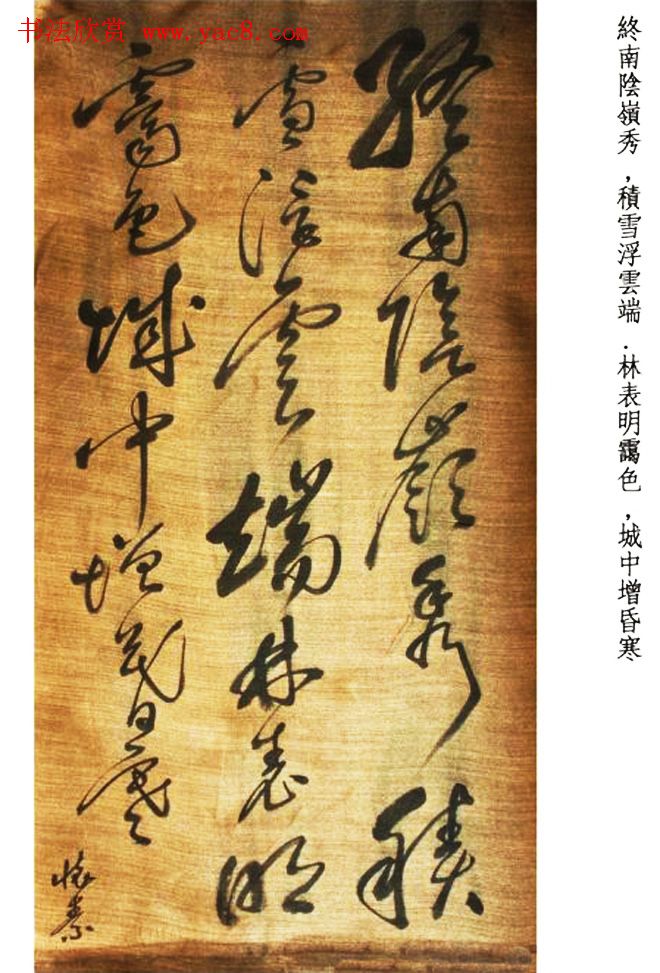 书法欣赏 www.yac8.com
終南陰嶺秀積
雪浮雲端林表明
霽色城中增暮寒
懷素
終南陰嶺秀，積雪浮雲端．林表明靄色，城中增昏寒